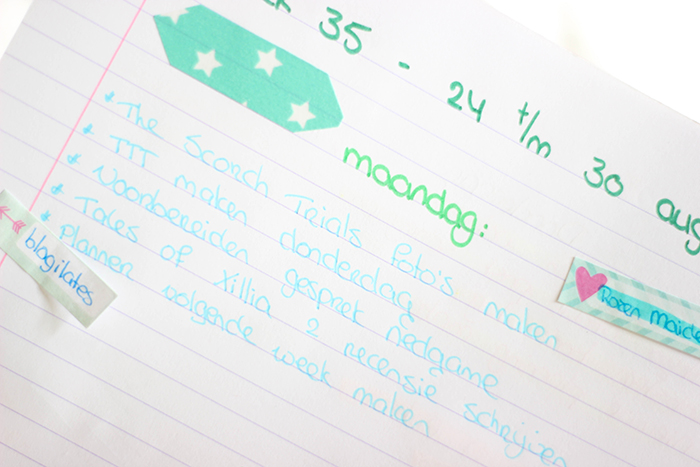 35 - 24 t/m 30 aug
maandag:
The Scorch Trials foto's maken
TTT maken donderdag
Voorbereiden gesprek nedgame
Tales of Xillia 2 recensie schrijven
Plannen volgende week maken
blogilates
Rozen Maide